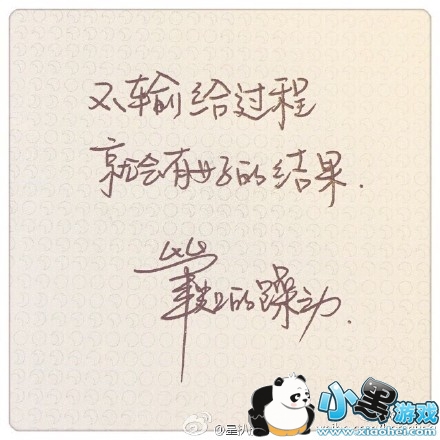 不输给过程
就会有好的结果.
的躁动.
@星扒
小黑游戏
www.xiaohei.com